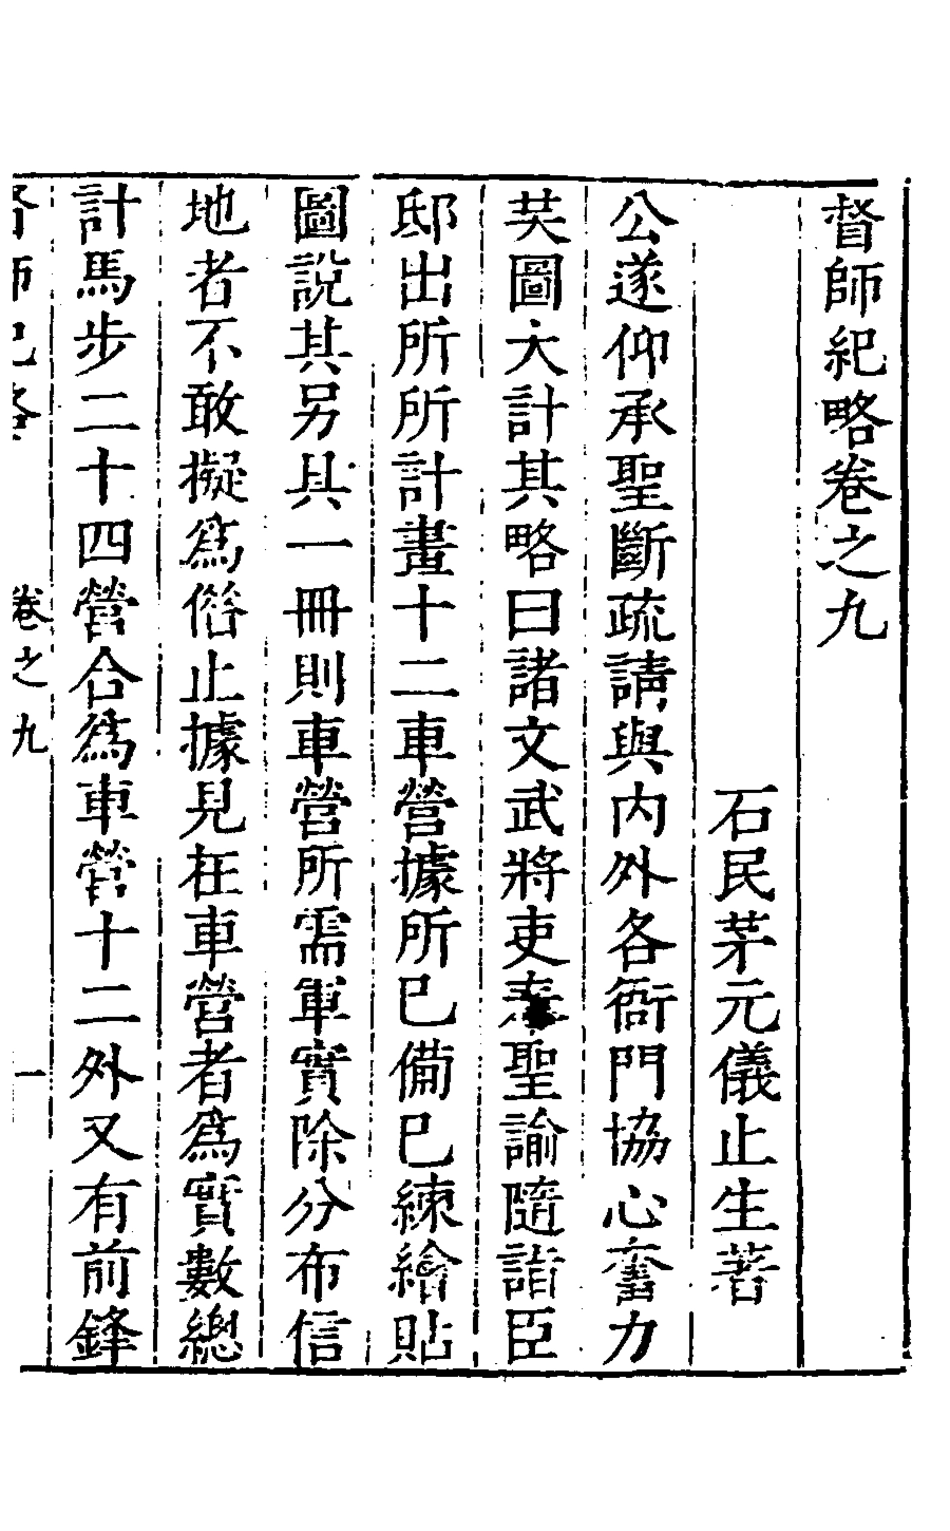 督師紀略卷之九
石民茅元儀止生著
公遂仰承聖斷疏請與內外各衙門協心奮力
共圖大計其略曰諸文武將吏奉聖諭隨詣臣
邸出所所計畫十二車營據所已備已練繪貼
圖說其另具一冊則車營所需軍實除分布信
地者不敢擬為偹止據見在車營者為實數總
計馬步二十四營合為車營十二外又有前鋒
督師紀略 卷之九 一